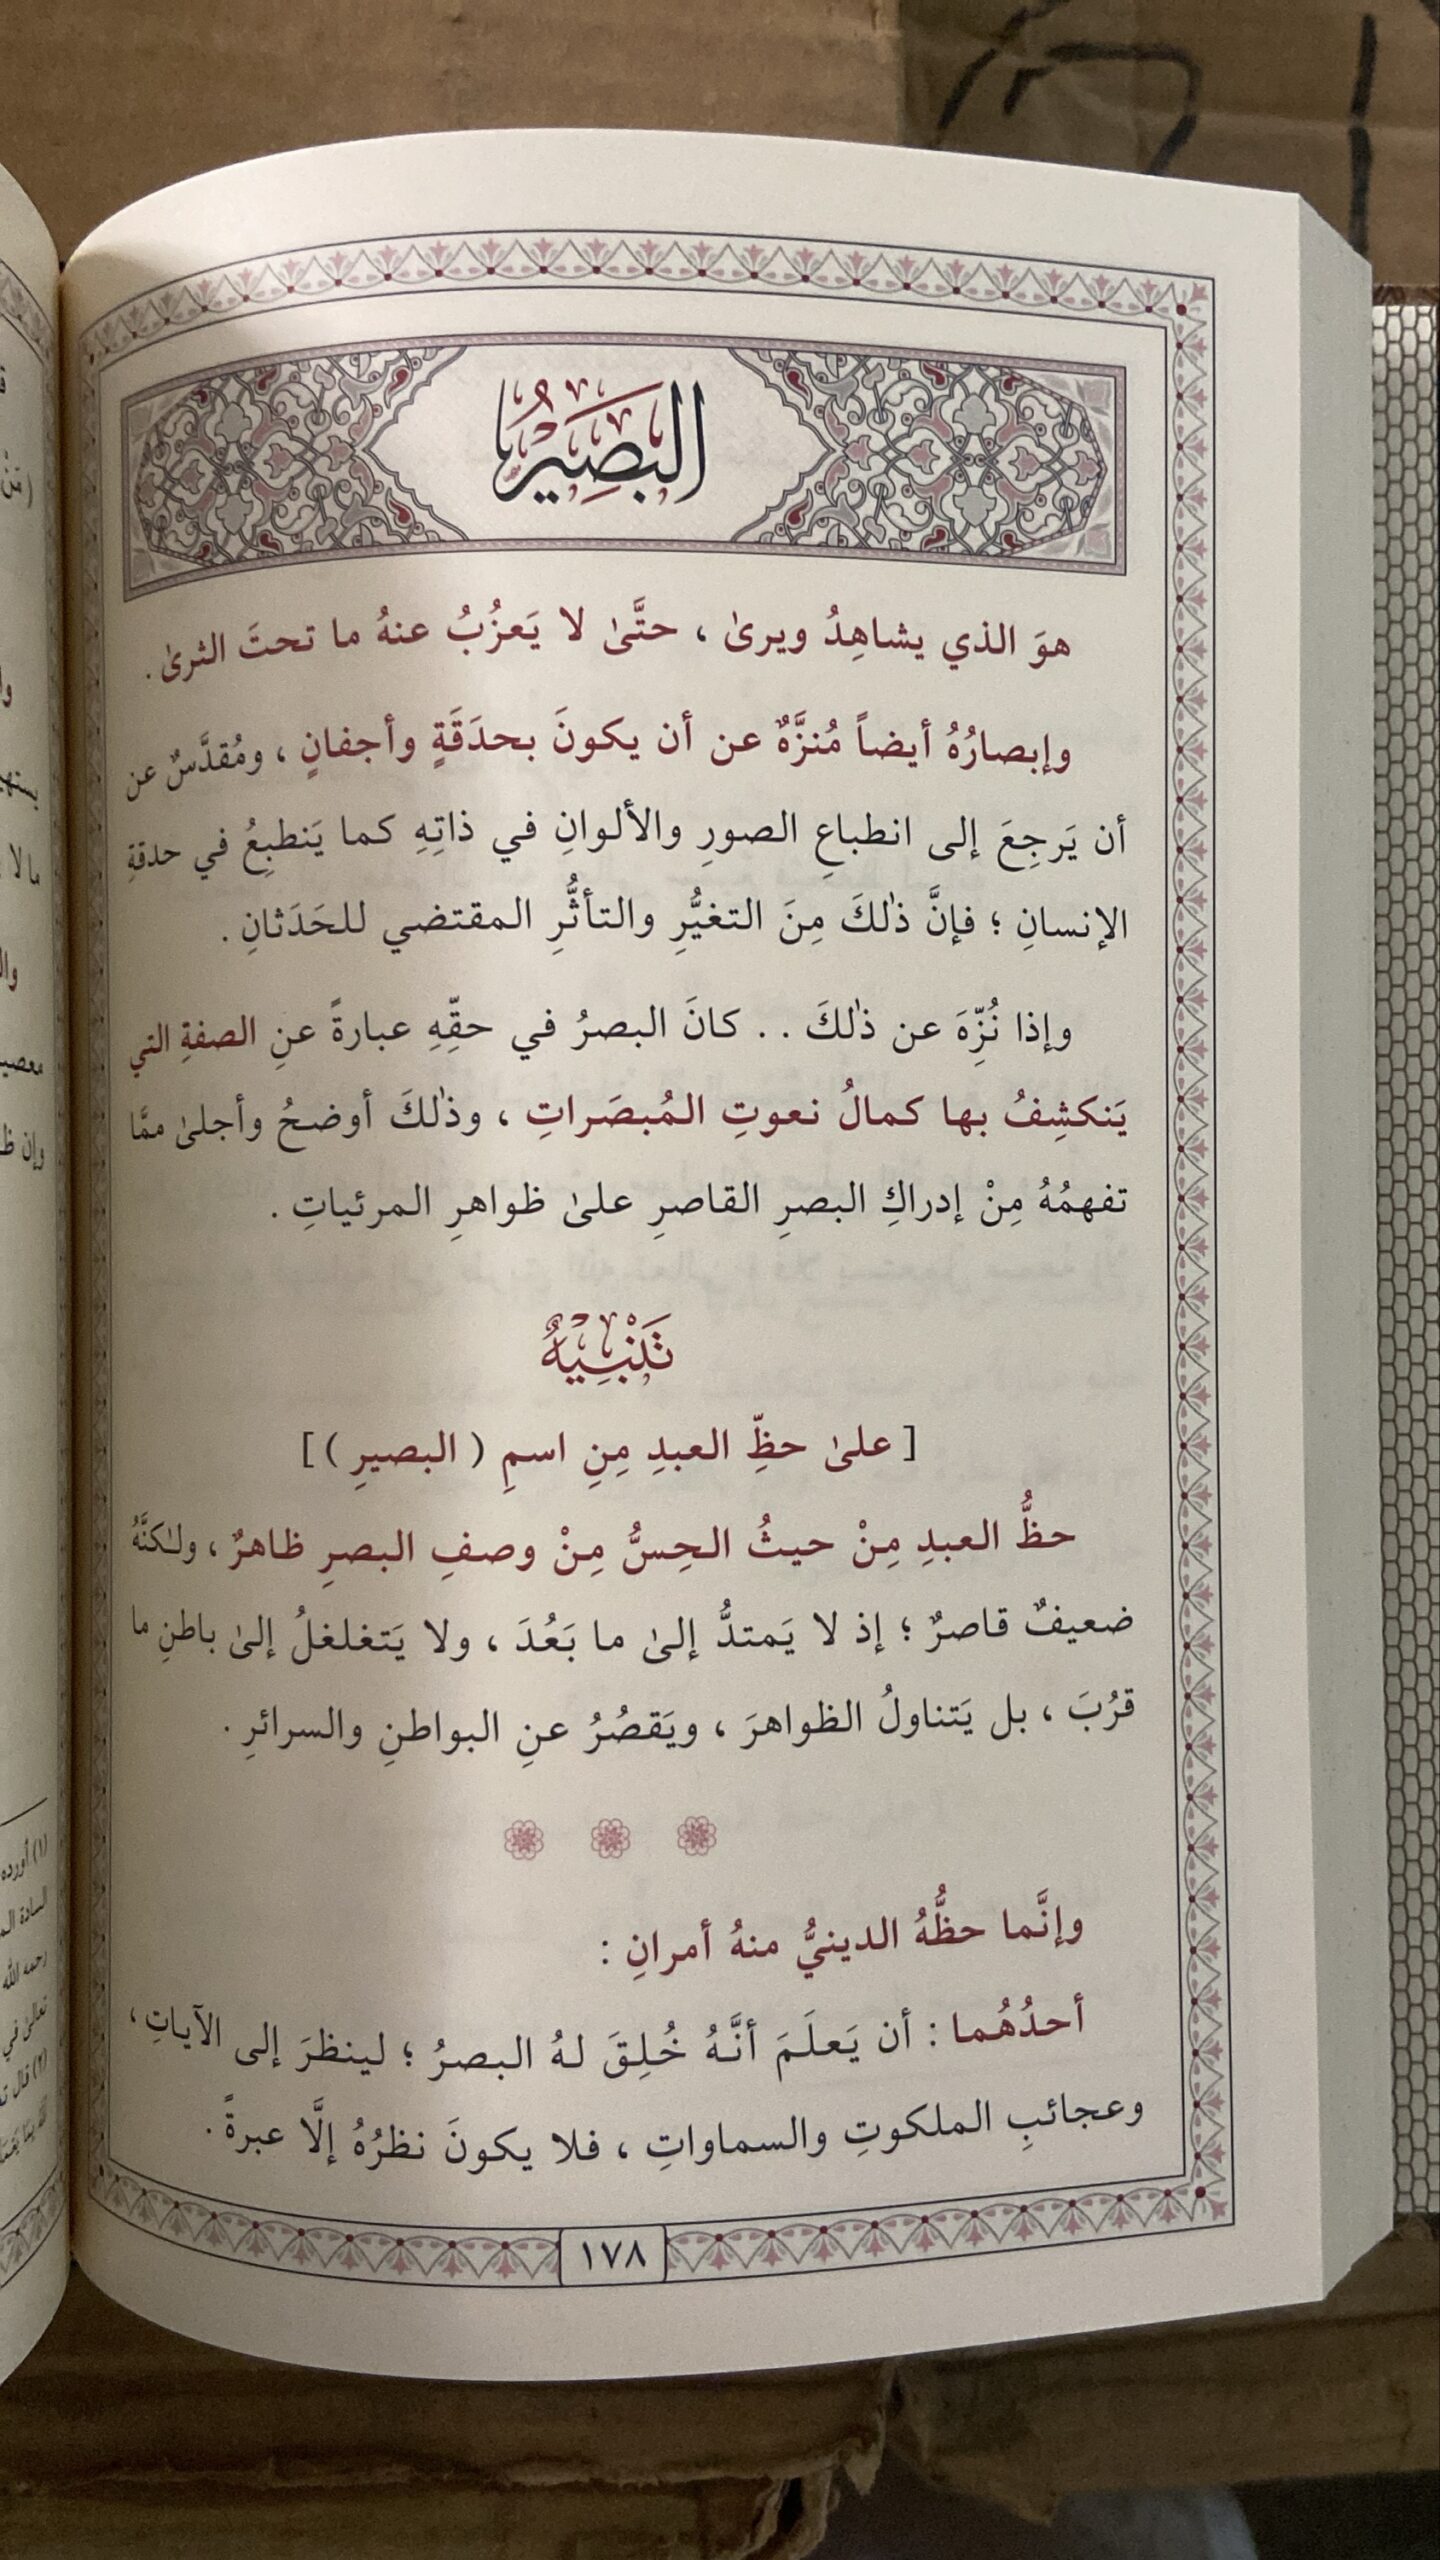 البَصِيْرُ
هوَ الذي يشاهِدُ ويرىٰ ، حتَّىٰ لا يَعزُبُ عنهُ ما تحتَ الثرىٰ .
وإبصارُهُ أيضاً مُنزَّهٌ عن أن يكونَ بحدَقَةٍ وأجفانٍ ، ومُقدَّسٌ عن
أن يَرجِعَ إلى انطباعِ الصورِ والألوانِ في ذاتِهِ كما يَنطبِعُ في حدقةِ
الإنسانِ ؛ فإنَّ ذٰلكَ مِنَ التغيُّرِ والتأثُّرِ المقتضي للحَدَثانِ .
وإذا نُزِّهَ عن ذٰلكَ . . كانَ البصرُ في حقِّهِ عبارةً عنِ الصفةِ التي
يَنكشِفُ بها كمالُ نعوتِ المُبصَراتِ ، وذٰلكَ أوضحُ وأجلىٰ ممَّا
تفهمُهُ مِنْ إدراكِ البصرِ القاصرِ علىٰ ظواهرِ المرئياتِ .
تَنْبِيْهٌ
[ علىٰ حظِّ العبدِ مِنِ اسمِ ( البصيرِ ) ]
حظُّ العبدِ مِنْ حيثُ الحِسُّ مِنْ وصفِ البصرِ ظاهرٌ ، ولٰكنَّهُ
ضعيفٌ قاصرٌ ؛ إذ لا يَمتدُّ إلىٰ ما بَعُدَ ، ولا يَتغلغلُ إلىٰ باطنِ ما
قرُبَ ، بل يَتناولُ الظواهرَ ، ويَقصُرُ عنِ البواطنِ والسرائرِ .
وإنَّما حظُّهُ الدينيُّ منهُ أمرانِ :
أحدُهُما : أن يَعلَمَ أنَّهُ خُلِقَ لهُ البصرُ ؛ لينظرَ إلى الآياتِ ،
وعجائبِ الملكوتِ والسماواتِ ، فلا يكونَ نظرُهُ إلَّا عبرةً .
١٧٨